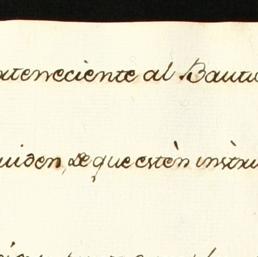 rteneciente al Bauti
uiden, de que estèn instru